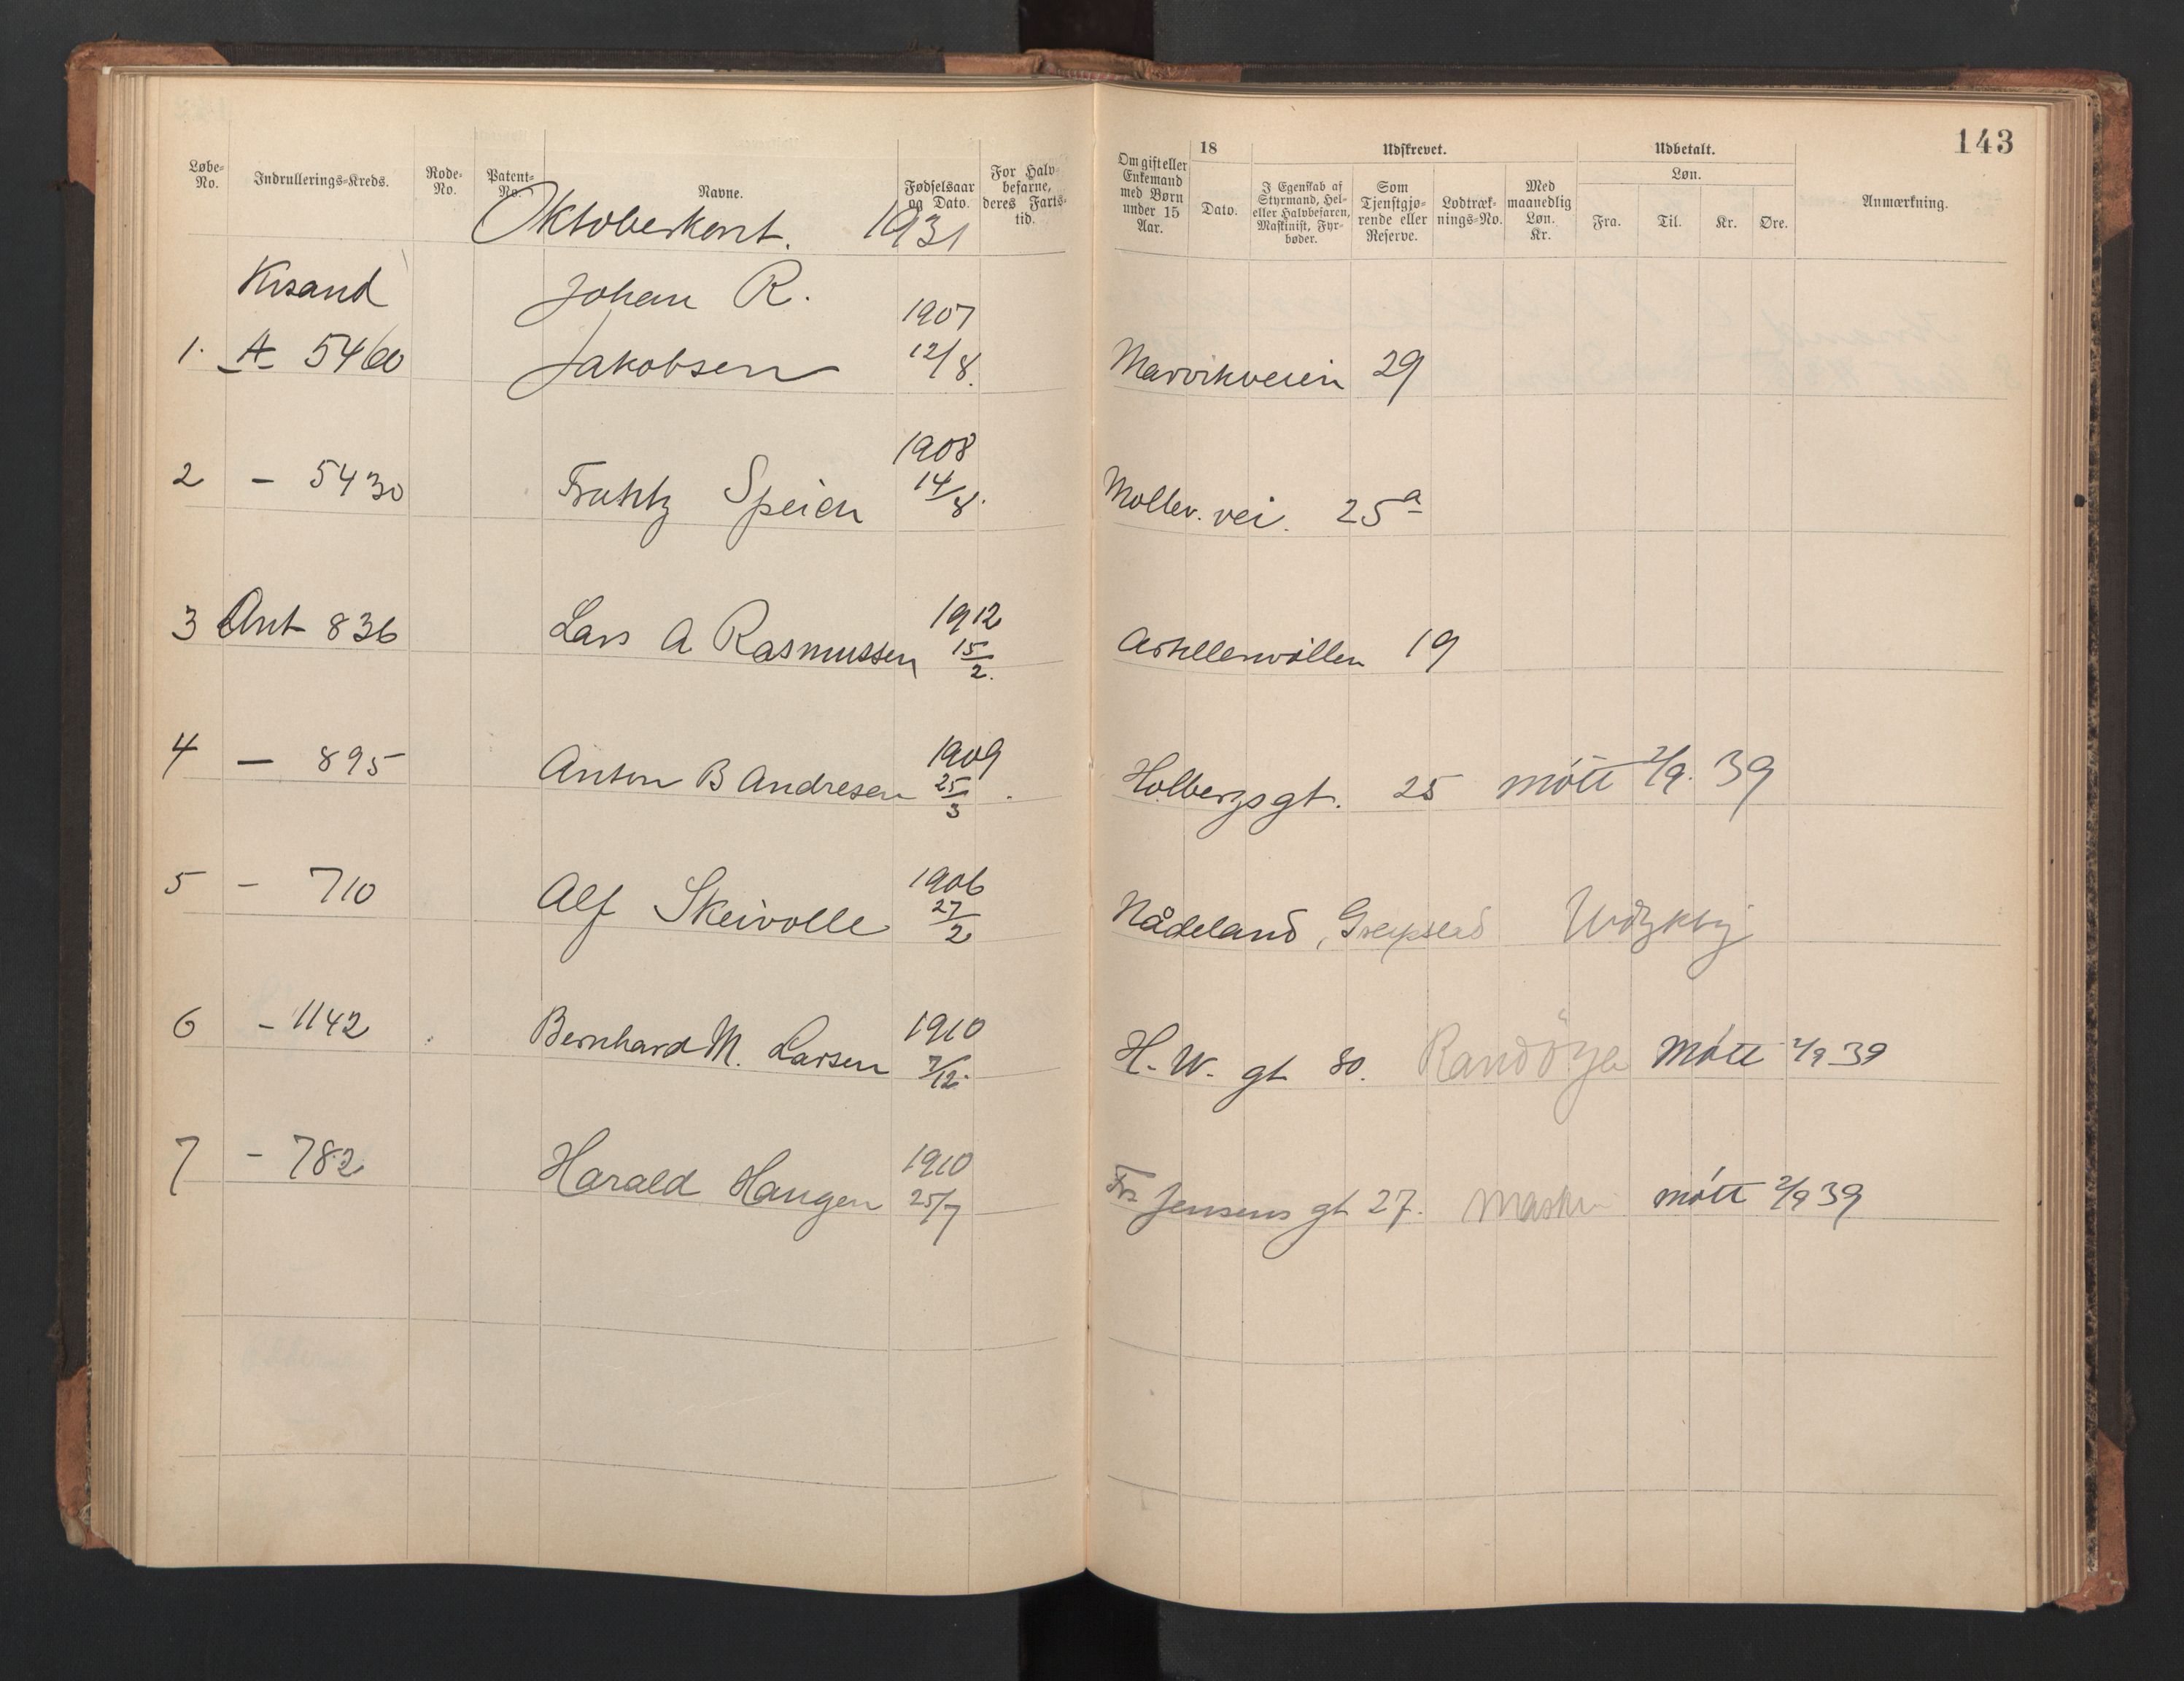 143
Løbe-No.
Indrullerings-Kreds.
Rode-No.
Patent-No.
Navne.
Fødselsaar og Dato.
For Halvbefarne, deres Fartstid.
Om gift eller Enkemand med Børn under 15 Aar.
18
Dato.
Udskrevet.
I Egenskab af Styrmand, Hel- eller Halvbefaren, Maskinist, Fyrbøder.
Som Tjenstgjørende eller Reserve.
Lodtræknings-No.
Med maanedlig Løn. Kr.
Udbetalt.
Løn.
Fra. Til. Kr. Øre.
Anmærkning.
Oktoberkont. 1931
Krsand Johan R. 1907
1. A 5460 Jakobsen 12/8. Marvikveien 29
1908
2 – 5430 Speier 14/8. Møller. vei. 25a
3 Ant 836 Lars A Rasmussen 1912 15/2. 19
4 – 895 Anton B Andresen 1909 25/3 Holbergsgt. 25 møtt 2/9. 39
5 – 710 Alf Skeivolle 1906 27/2 Nådeland, Greipstad
6 – 1142 Bernhard M. Larsen 1910 7/12. H. W. gt 80. Randøya Møtt 2/9 39
7 – 782 Harald Haugen 1910 25/7 Fr. Jensens gt 27. møtt 2/9 39